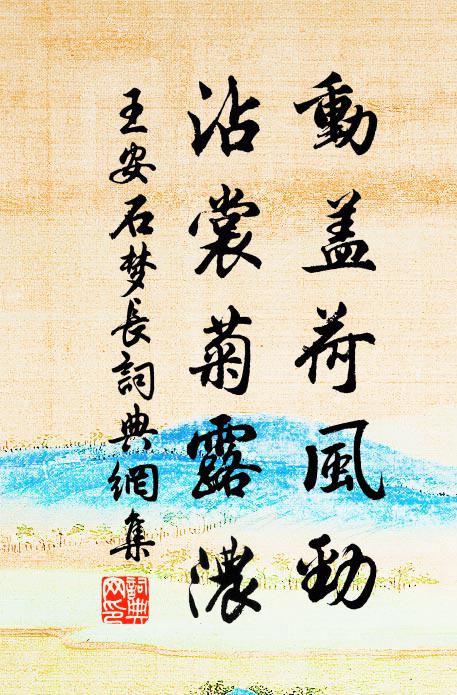 動盖荷風勁
沾裳菊露濃
王安石梦長詞典網集
詞典